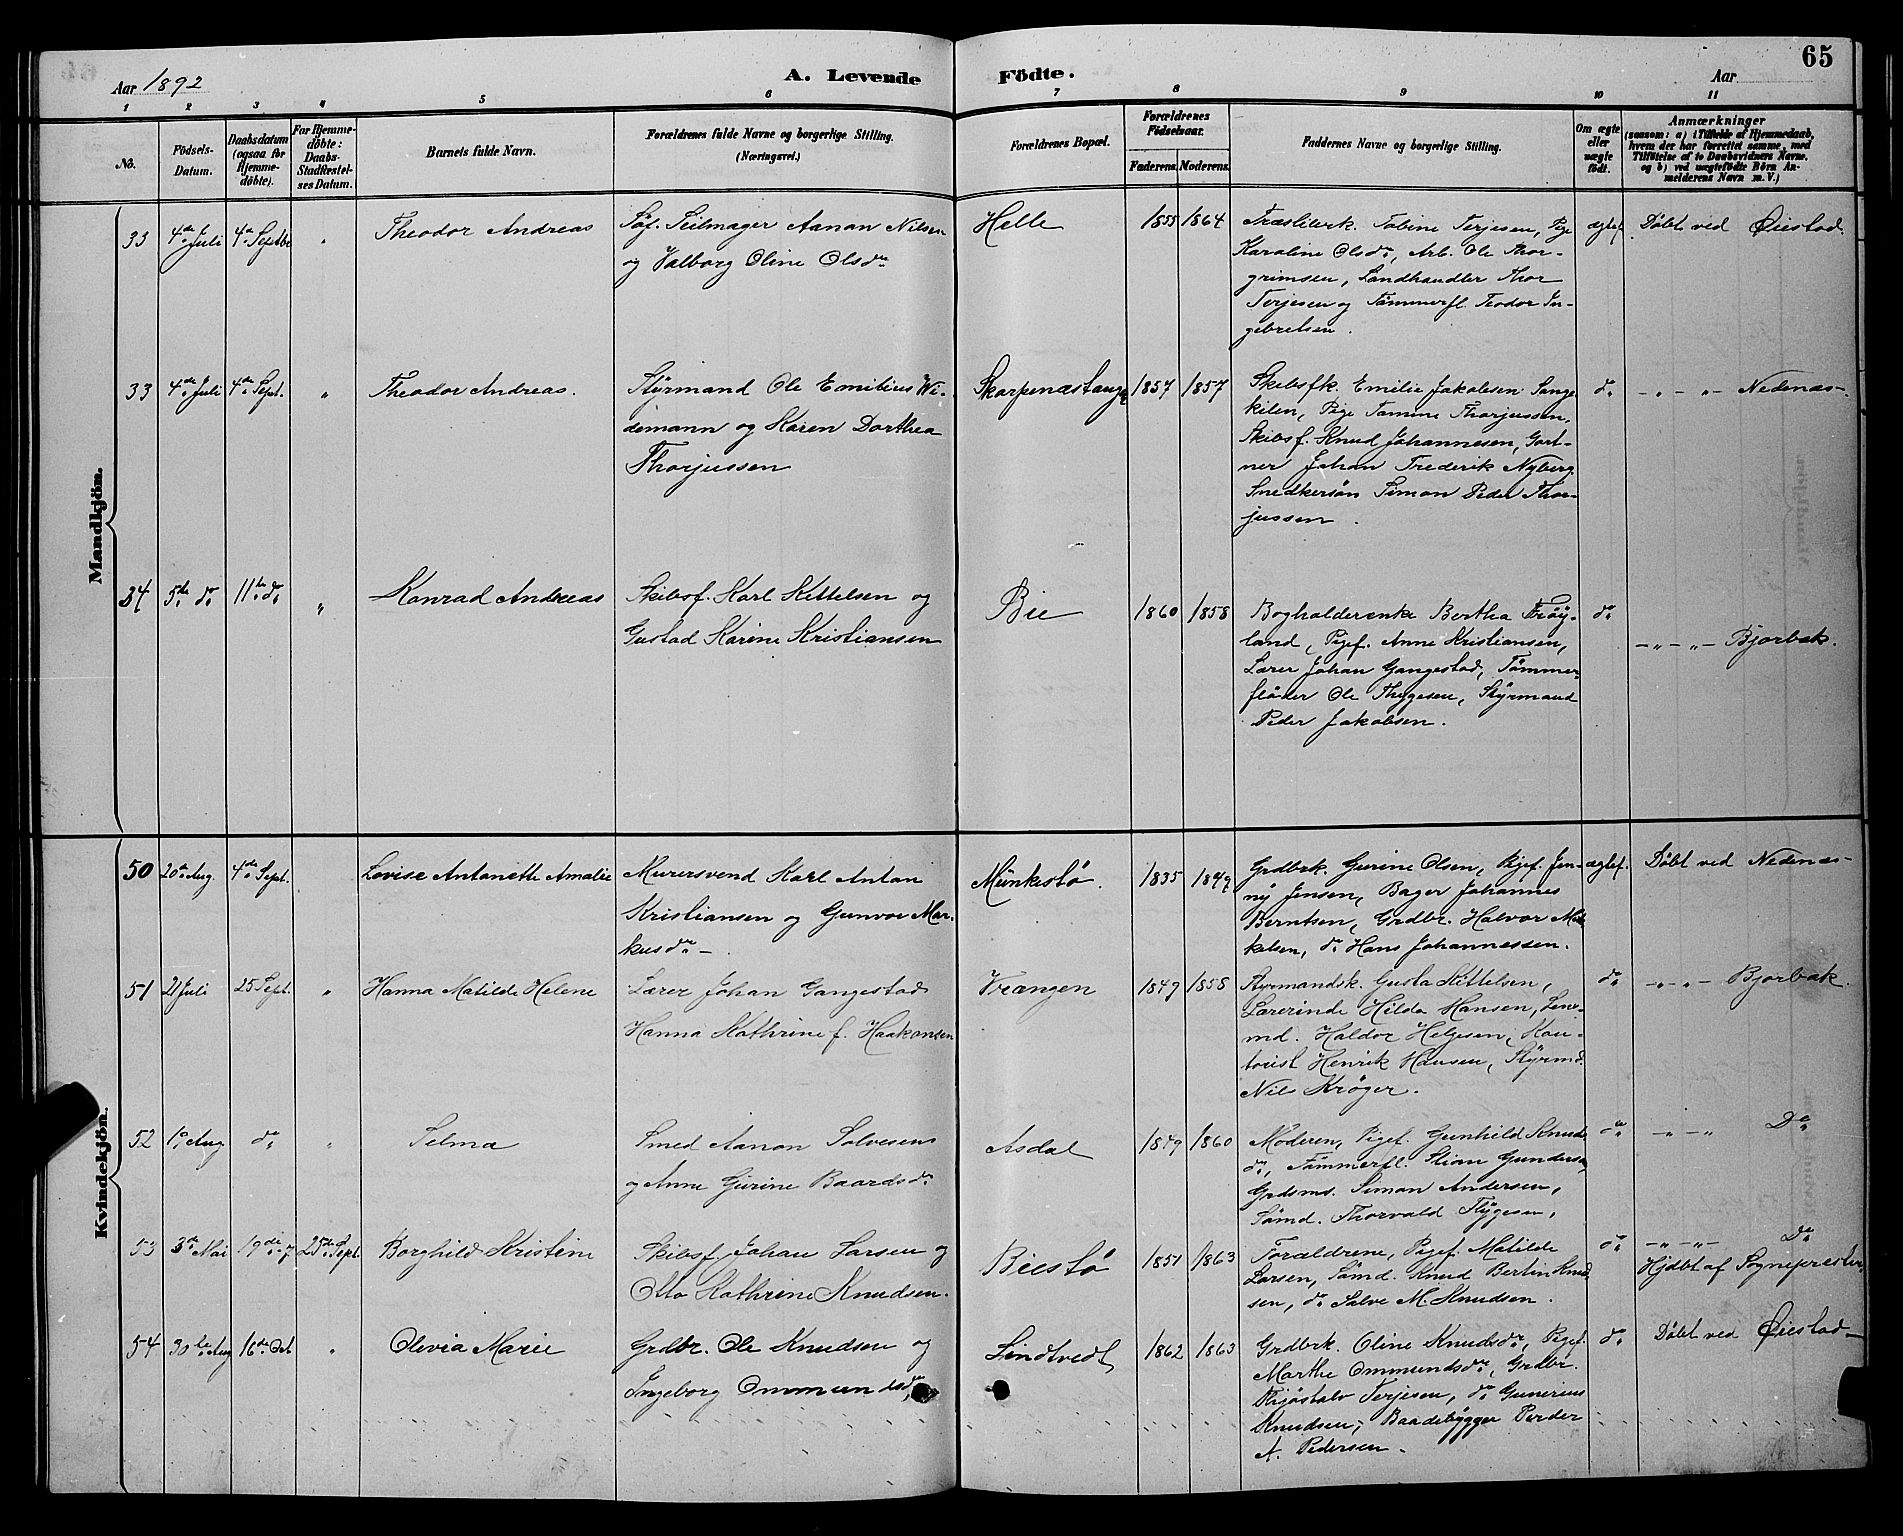 65
Aar 1892
A. Levende
Födte.
Aar
1 2 3 4 5 6 7 8 9 10 11
No.
Födsels-
Datum.
Daabsdatum
(ogsaa for
Hjemme-
döbte).
For Hjemme-
döbte:
Daabs-
Stadfæstel-
ses Datum.
Barnets fulde Navn.
Forældrenes fulde Navne og borgerlige Stilling.
(Næringsvei.)
Forældrenes Bopæl.
Forældrenes
Födselsaar.
Faderens.
Moderens.
Faddernes Navne og borgerlige Stilling.
Om ægte
eller
uægte
födt.
Anmærkninger
(saasom: a) i Tilfælde af Hjemmedaab,
hvem der har forrettet samme, med
Tilföielse af to Daabsvidners Navne,
og b) ved uægtefödte Börn An-
melderens Navn m. V.)
Mandkjön.
33 4de Juli 4de Septbr " Theodor Andreas
Söf. Seilmager Aanon Nilsen
og Valborg Oline Olsdr
Helle 1855 1864
Træslibersk. Tobine Terjesen, Pige
Karoline Olsdr, Arb. Ole Thor-
grimsen, Landhandler Thor
Terjesen og Tömmerfl. Teodor In-
gebretsen.
ægtef. Döbt ved Öiestad.
33 4de Juli 4de Sept. " Theodor Andreas.
Styrmand Ole Emilius Wi-
demann og Karen Dorthea
Thorjussen
Skarpenæstangen 1857 1857
Skibsfk. Emilie Jakobsen Songe-
kilen, Pige Tomine Thorjussen,
Skibsf. Knud Johannesen, Gart-
ner Johan Frederik Nyberg
Snedkersön Simon Peder Thor-
jussen.
do -"-"- Nedenæs-
34 5te do 11te do " Konrad Andreas
Skibsf. Karl Kittelsen og
Gustad Karine Kristiansen
Bie 1860 1858
Bogholderenke Bertha Fröy-
land, Pigef. Anne Kristiansen,
Lærer Johan Gangestad, Tömmer-
flöder Ole Thygesen, Styrmand
Peder Jakobsen.
do -"-"- Bjorbæk.
Kvindekjön.
50 20de Aug. 4de Sept. Lovise Antonette Amalie
Murersvend Karl Anton
Kristiansen og Gunvor Mar-
kusdr -.
Munkestö. 1835 1849
Grdbrk. Gurine Olsen, Pigef. Jen-
ny Jensen, Bager Johannes
Berntsen, Grdbr. Halvor Mik-
kelsen, do Hans Johannessen.
ægtef. Döbt ved Nedenæs-
51 21 Juli 25 Sept. " Hanna Matilde Helene
Lærer Johan Gangestad
Hanna Kathrine f. Haakonsen
Vrængen 1849 1858
Styrmandsk. Gusta Kittelsen,
Lærerinde Hilda Hansen, Lens-
md. Haldor Helgesen, Kon-
torist Henrik Hansen, Styrmd.
Nils Kröger.
do -"-"- Bjorbæk.
52 19 Aug. do " Selma
Smed Aanon Salvesen
og Anne Gurine Baardsdr
Asdal 1849 1860
Moderen, Pigef. Gunhild Knuds-
dr, Tömmerfl. Stian Gundersen,
Grdsms. Simon Andersen,
Sömd. Thorvald Thygesen,
do -"-"- Do
53 3de Mai 19de - 7 25de Sept. Borghild Kristine
Skibsf. Johan Larsen og
Otto Kathrine Knudsen.
Biestö 1857 1863
Forældrene, Pigef. Matilde
Larsen, Sömd. Knud Bertin Knud-
sen, do Salve M. Knudsen.
do -"-"- Do
Hjdbt af Sognepresten
54 30te Aug 16de Oct " Olivia Marie
Grdbr. Ole Knudsen og
Ingeborg Ommundsdr
Lindtvedt 1862 1863
Grdbrk. Oline Knudsdr, Pigef.
Marthe Ommundsdr, Grdbr.
Terjesen, do Gunerius
Knudsen, Baadebygger Perder
A. Pedersen.
do Döbt ved Öiestad-